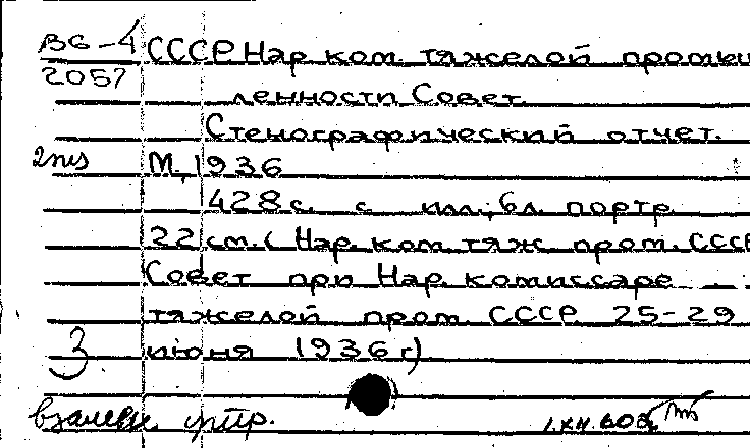 В6-4 СССР. Нар. ком. тяжелой промыш
2057
ленности. Совет.
Стенографический отчет.
2 экз М., 1936
428 с. с илл.; 6 л. портр.
22 см. ( Нар. ком. тяж. пром. СССР
Совет при Нар. комиссаре
тяжелой пром. СССР 25-29
июня 1936 г)
3
взамен утр.